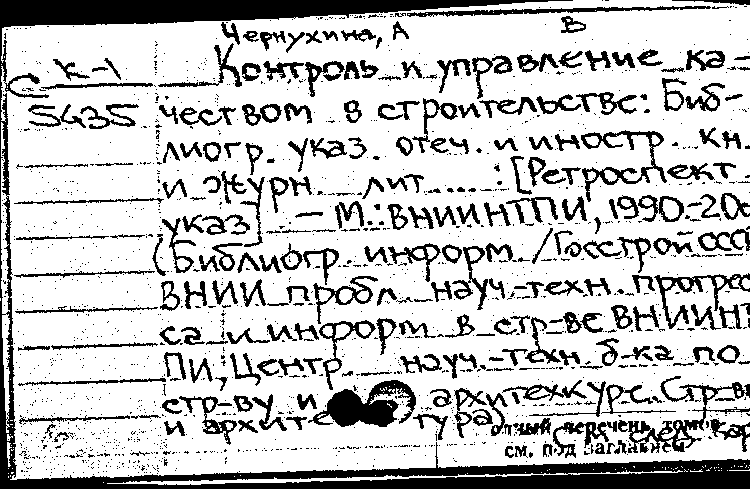 Чернухина, А В
К-1 Контроль и управление ка-
5435 чеством в строительстве: Биб-
лиогр. указ. отеч. и иностр. кн.
и журн. лит....: [Ретроспект.
указ]. – М.: ВНИИНТПИ, 1990.-20с
(Библиогр. информ. / Госстрой СССР
ВНИИ пробл. науч.-техн. прогрес
са и информ в стр-ве ВНИИНТ
ПИ, Центр. науч.-техн. б-ка по
стр-ву и архитехкур-с. Стр-во
и архите тура)
олный перечень томов
см. под заглавием